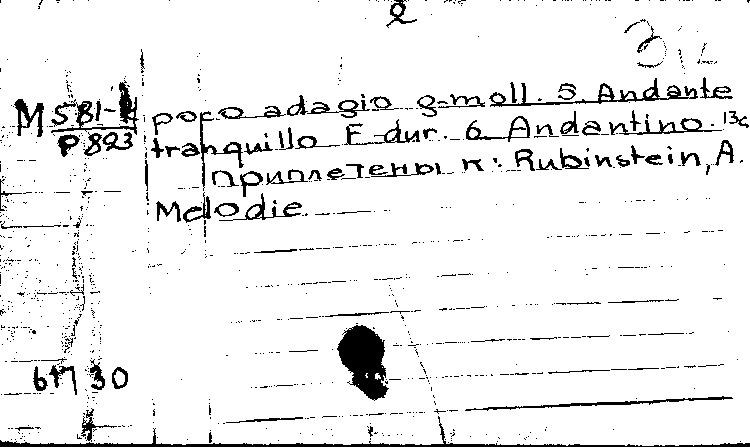 2
3i2
M 581-4
P 823
poco adagio g-moll. 5. Andante
tranquillo F-dur. 6. Andantino. 13c
приплетены к: Rubinstein, A.
Melodie
61730